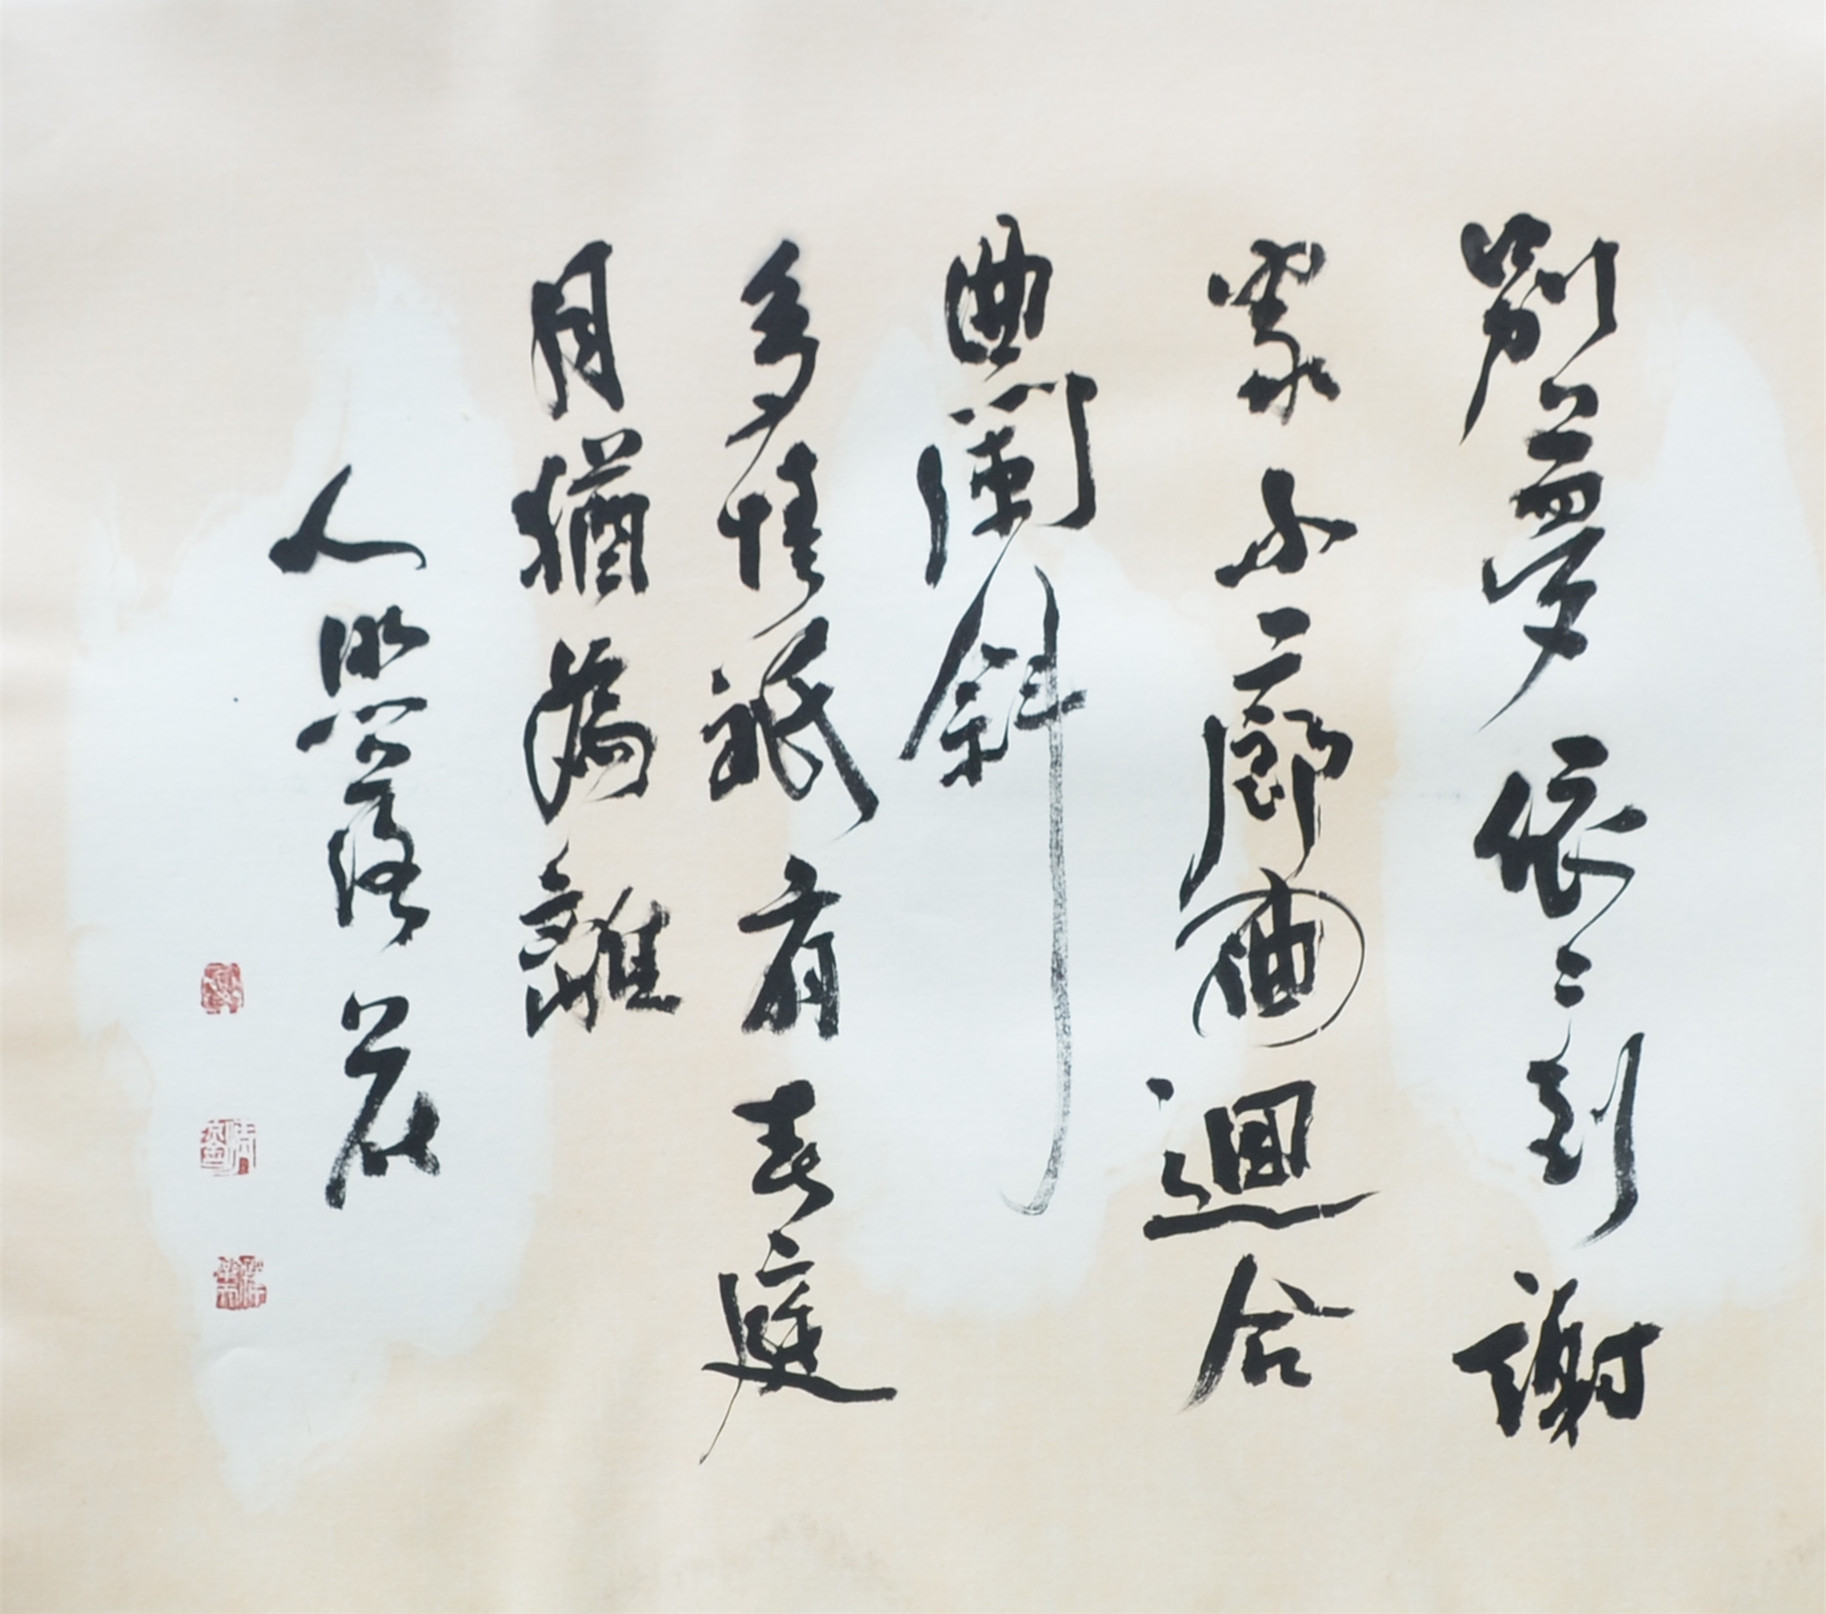 別夢依〻到謝
家小廊曲迴合
曲闌斜
多情祗有春庭
月猶為離
人照落花